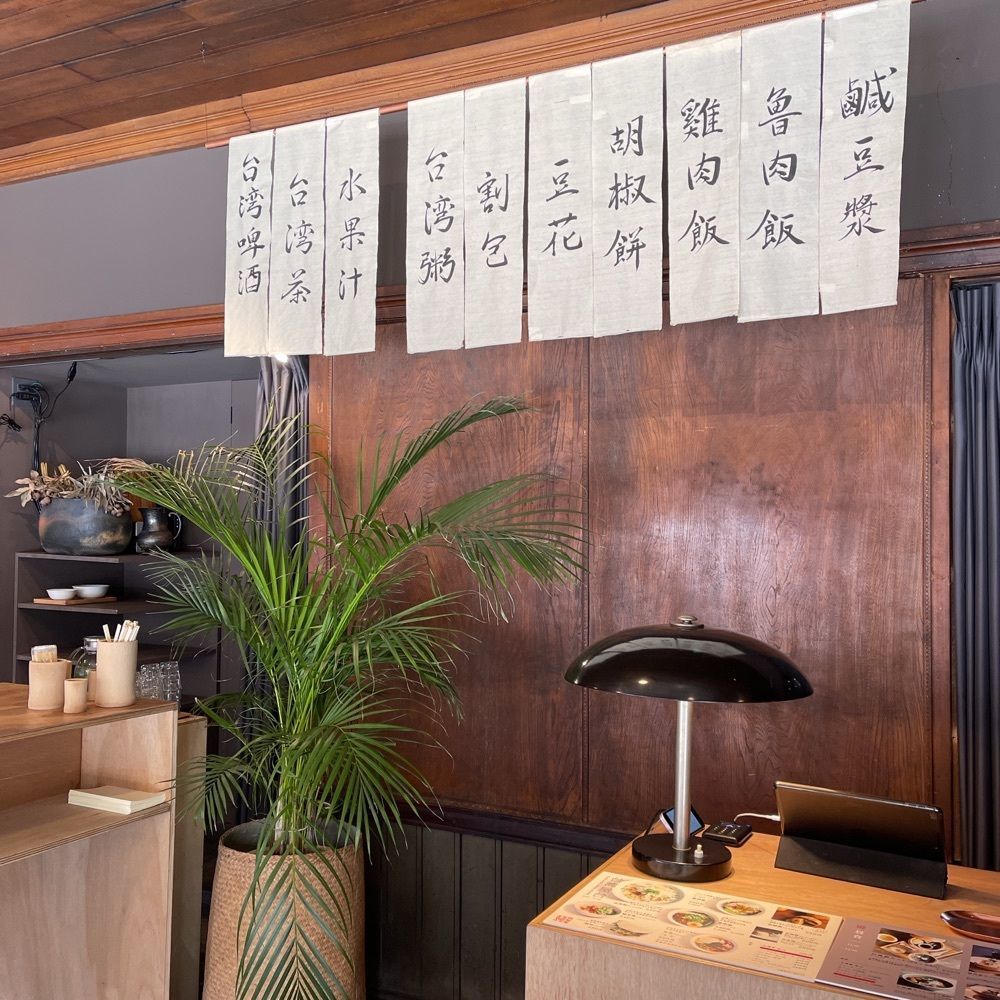 鹹豆漿
魯肉飯
雞肉飯
胡椒餅
豆花
割包
台湾粥
水果汁
台湾茶
台湾啤酒